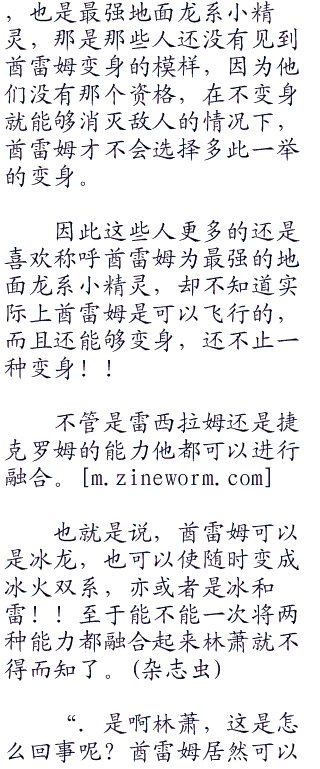 ，也是最强地面龙系小精
灵，那是那些人还没有见到
酋雷姆变身的模样，因为他
们没有那个资格，在不变身
就能够消灭敌人的情况下，
酋雷姆才不会选择多此一举
的变身。
因此这些人更多的还是
喜欢称呼酋雷姆为最强的地
面龙系小精灵，却不知道实
际上酋雷姆是可以飞行的，
而且还能够变身，还不止一
种变身！！
不管是雷西拉姆还是捷
克罗姆的能力他都可以进行
融合。[m.zineworm.com]
也就是说，酋雷姆可以
是冰龙，也可以使随时变成
冰火双系，亦或者是冰和
雷！！至于能不能一次将两
种能力都融合起来林萧就不
得而知了。(杂志虫)
“．是啊林萧，这是怎
么回事呢？酋雷姆居然可以